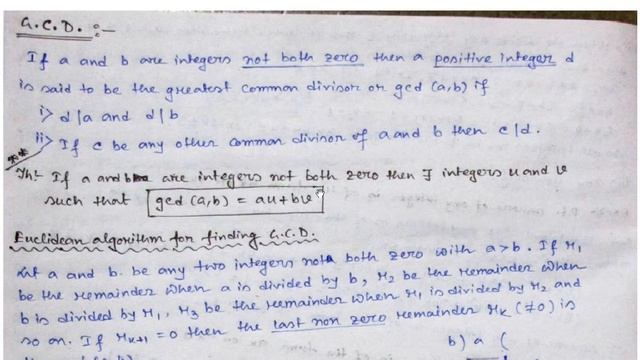 G.C.D. :-
If a and b are integers not both zero then a positive integer d
is said to be the greatest common divisor or gcd (a,b) if
i> d|a and d|b
ii> If c be any other common divisor of a and b then c|d.
Th:- If a and b are integers not both zero then ∃ integers u and v
such that gcd (a,b) = au+bv
Euclidean algorithm for finding G.C.D.
Let a and b. be any two integers not both zero with a>b. If r₁
be the remainder when a is divided by b, r₂ be the remainder when
b is divided by r₁, r₃ be the remainder when r₁ is divided by r₂ and
so on. If rₖ₊₁ = 0 then the last non zero remainder rₖ (≠0) is
b) a (